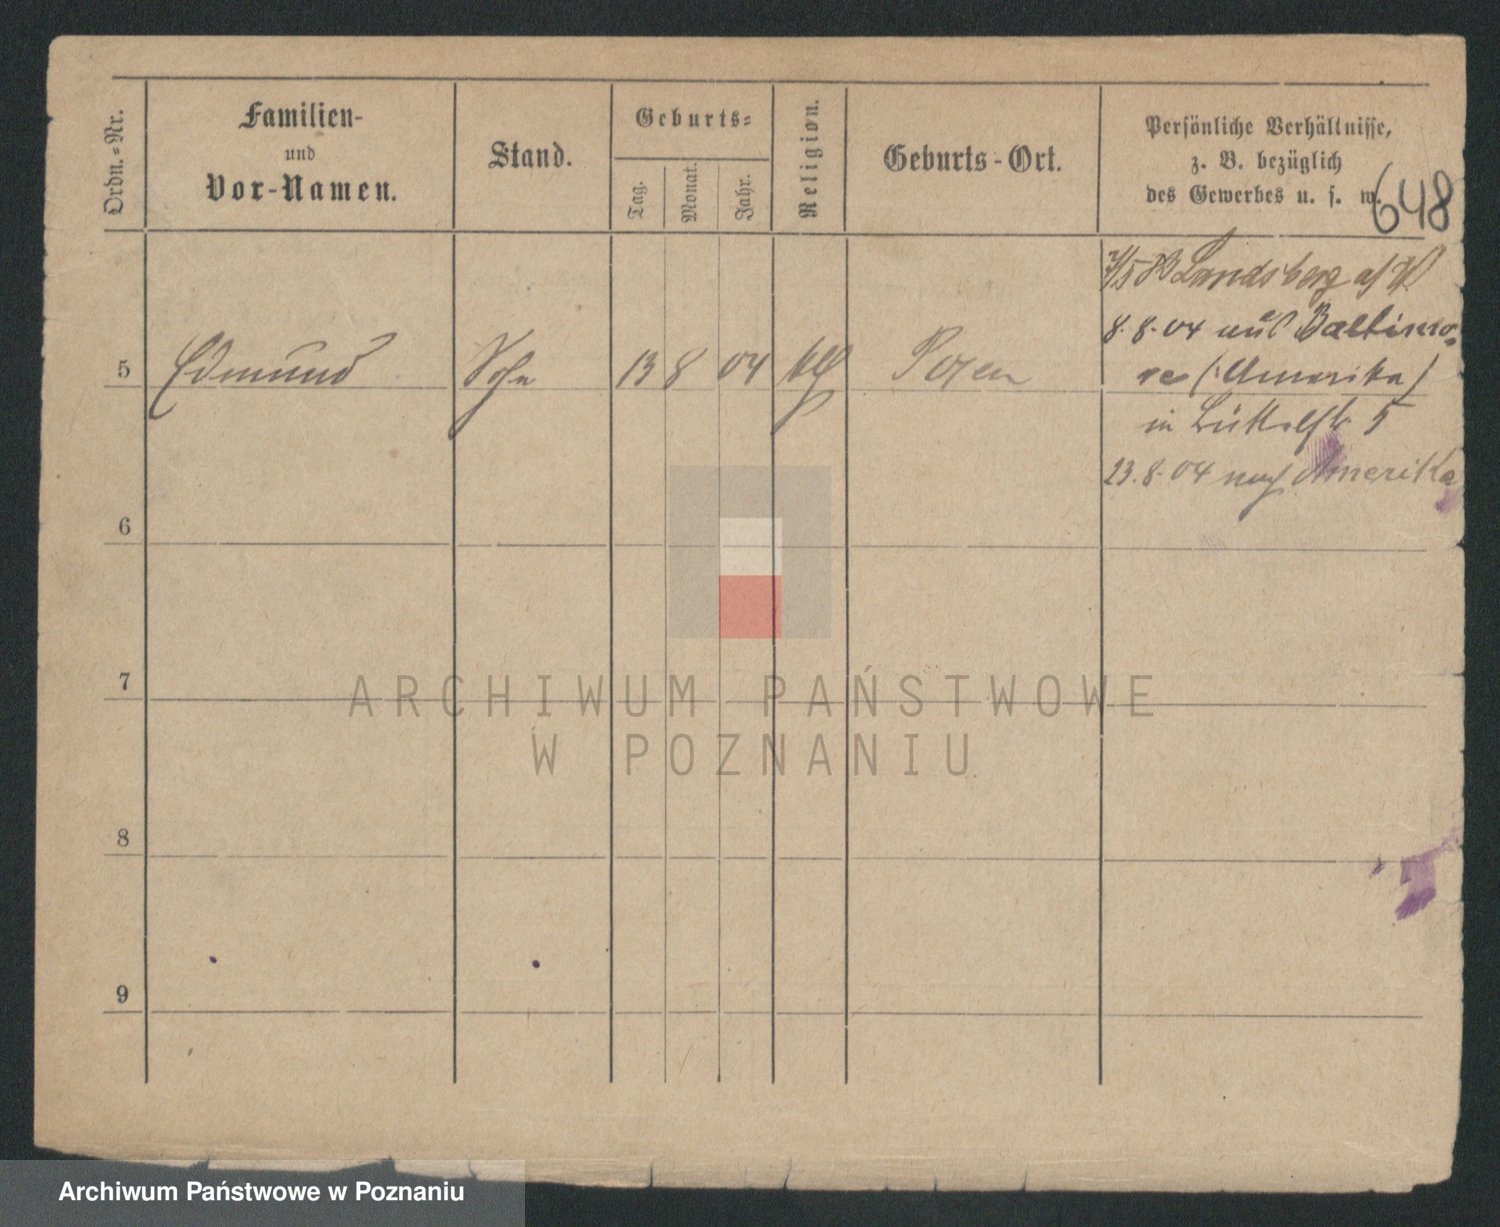 Ordn.-Nr.
Familien-
und
Vor-Namen.
Stand.
Geburts-
Tag.
Monat.
Jahr.
Religion.
Geburts-Ort.
Persönliche Verhältnisse,
z. B. bezüglich
des Gewerbes u. s. w.
648
Landsberg a/W
8.8.04 aus Baltimo-
5 Edmund Sohn 13 8 04 kth Posen re (Amerika)
in 5
23.8.04 nach Amerika
6
7
ARCHIWUM PAŃSTWOWE
W POZNANIU
8
9
Archiwum Państwowe w Poznaniu